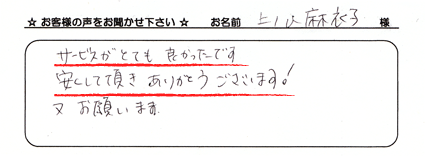 ☆ お客様の声をお聞かせ下さい ☆ お名前 麻衣子 様
サービスがとても良かったです
安くして頂きありがとうございます!
又お願いします